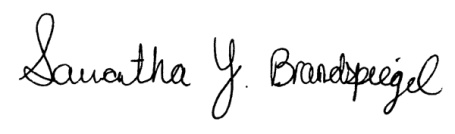 Samantha Y. Brandspiegel